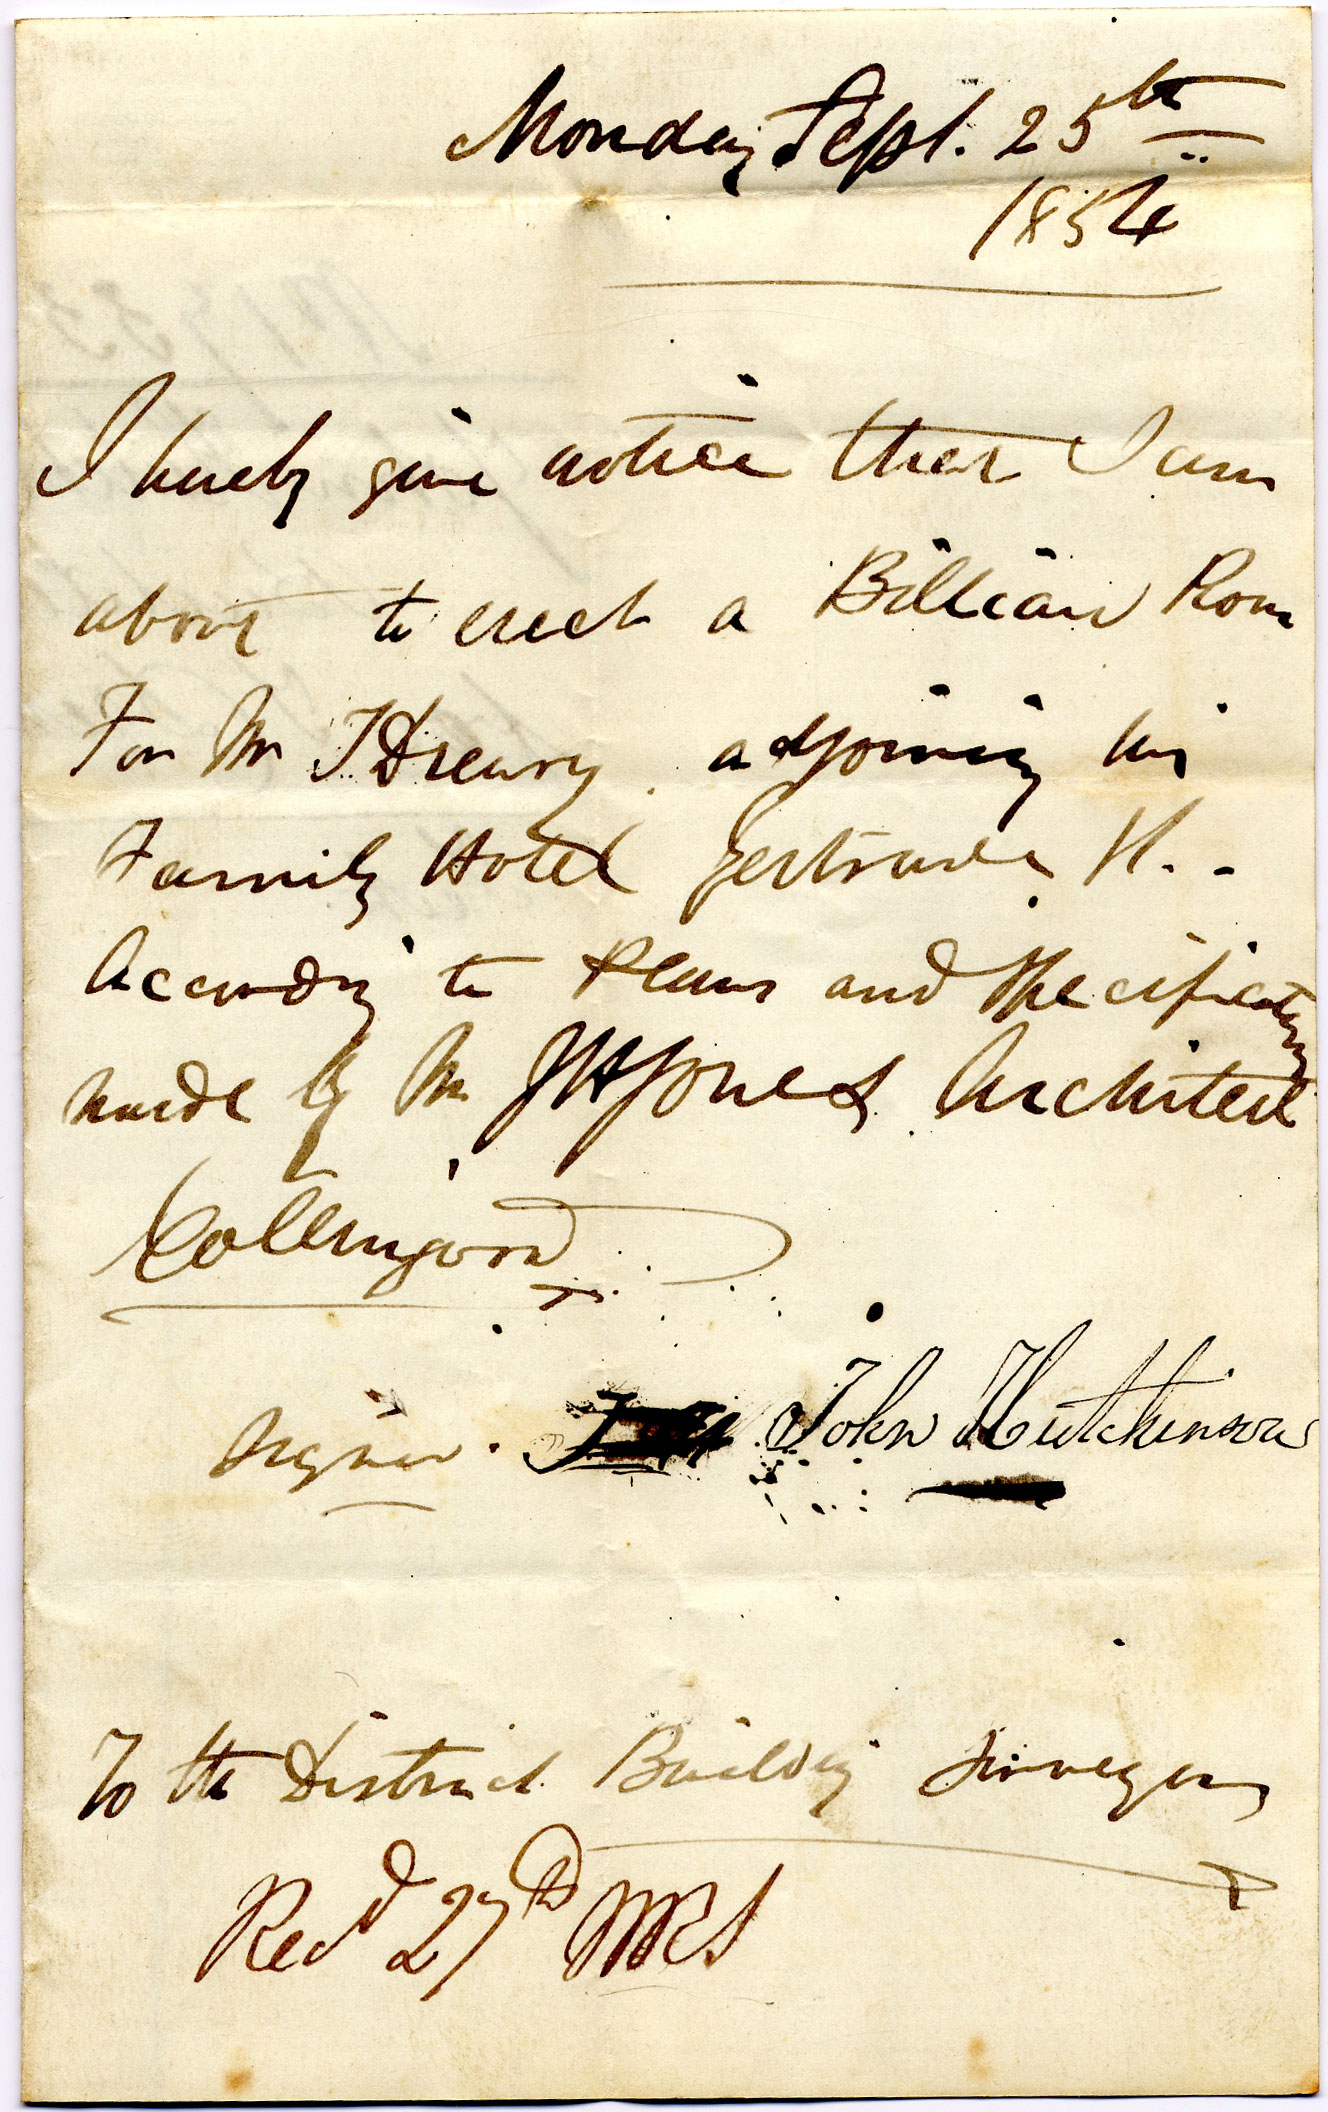 Monday Sept. 25th
1854
I hereby give notice that I am
about to erect a Billiard Room
For Mr T Drewry adjoining his
Family Hotel Gertrude St. -
According to Plans and Specification
made by Mr J H Jones Architect
Collingwood
Signed. John Hutchinson
To the District Building Surveyor
Recd 27th